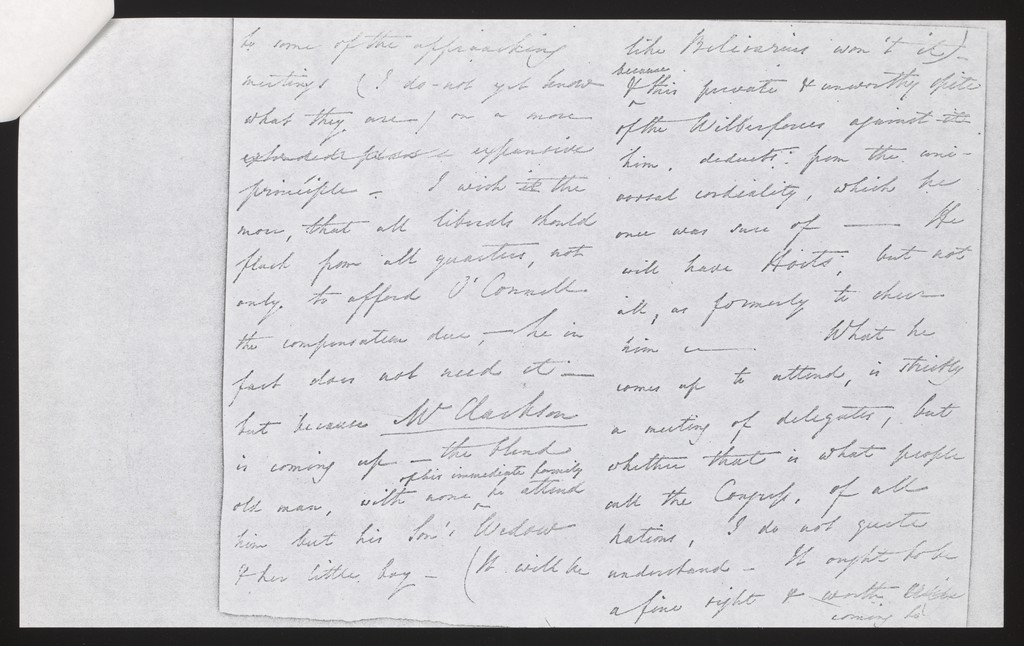 to some of the approaching
meetings (I do not yet know
what they are) on a more
expansive
principle – I wish it the
more, that all liberals should
flock from all quarters, not
only to afford O'Connell
the compensation due, – he in
fact does not need it –
but because Mr Clarkson
is coming up – the blind
of his immediate family
old man, with none to attend
him but his Son's Widow
& her little boy – (It will be
like Belisarius won't it) –
because
& this private & unworthy spite
of the Wilberforces against it
him, deducts from the uni-
versal cordiality, which he
once was sure of — He
will have Hosts, but not
all, as formerly to cheer
him — What he
comes up to attend, is strictly
a meeting of delegates, but
whether that is what people
call the Congress, of all
Nations, I do not quite
understand – It ought to be
a fine sight & worth
coming to